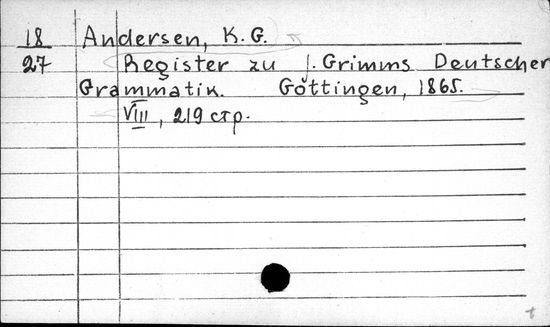 18 Andersen, K. G.
27 Register zu J. Grimms Deutscher
Grammatik. Göttingen, 1865.
VIII, 219 стр.